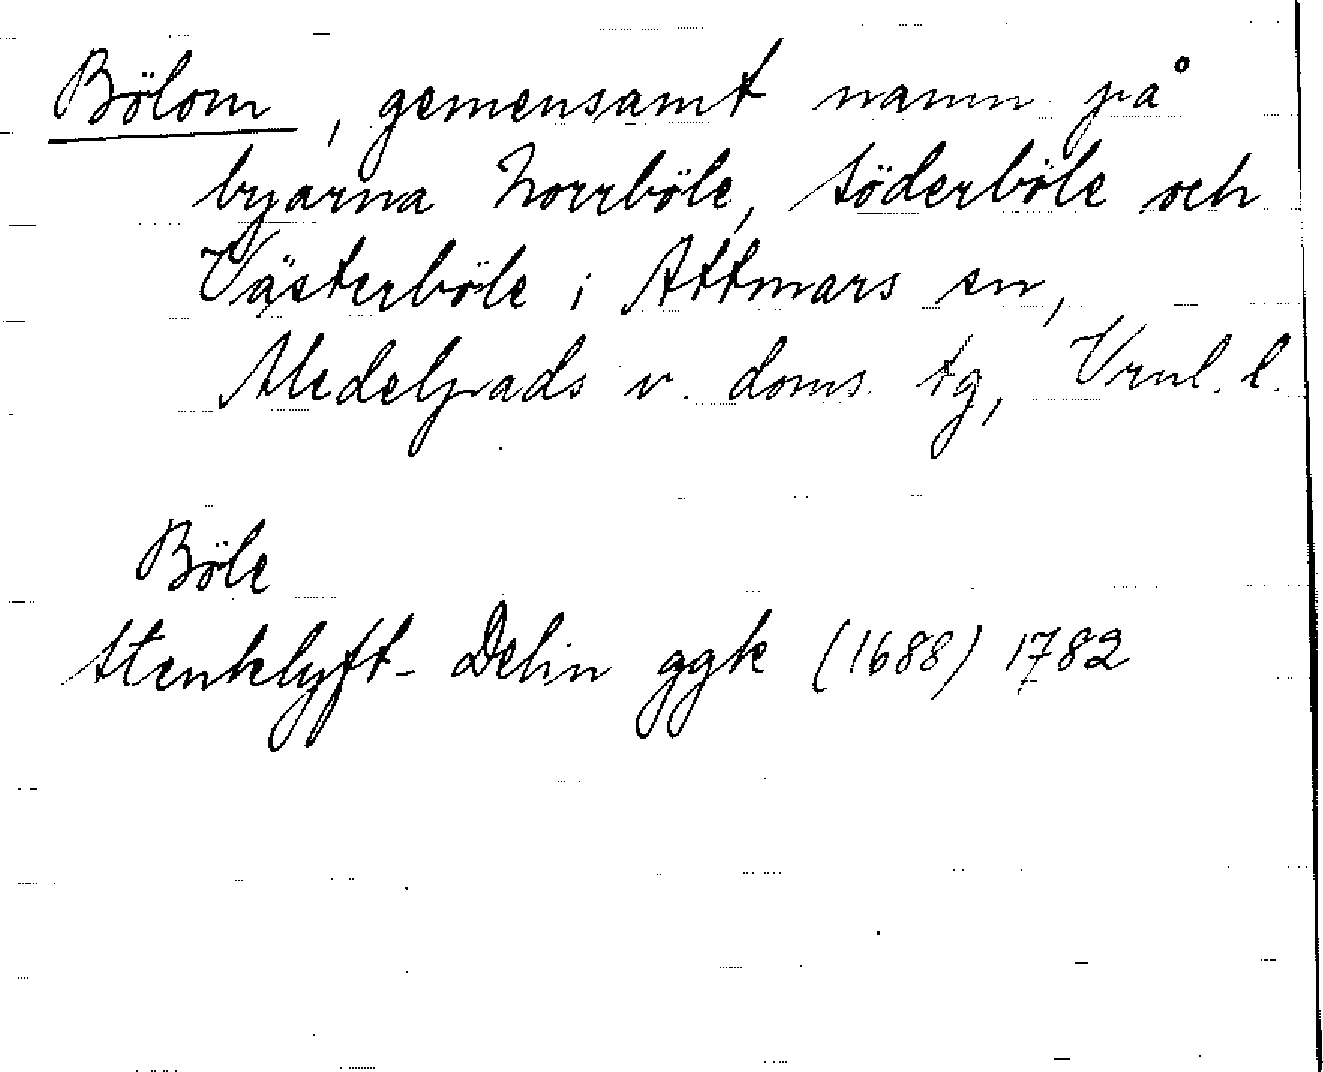 Bölom, gemensamt namn på
byarna Norrböle, Söderböle och
Västerböle i Attmars sn,
Medelpads v. doms. tg, Vrnl. l.
Böle
Stenklyft- Delin ggk (1688) 1782